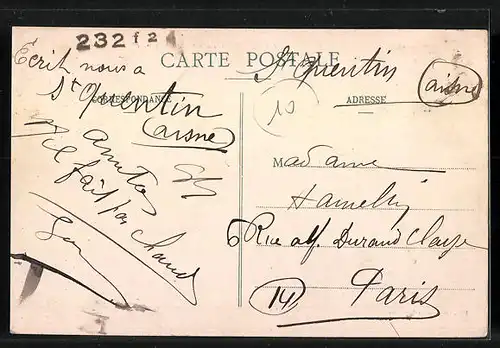 232 f 2
CARTE POSTALE
Ecrit nous a
St Quentin
(aisne)
CORRESPONDANCE
ADRESSE
St Quentin
(aisne)
10
il fait pas chaud
Madame
Hamelin
6 Rue alf. Durand Claye
(14) Paris